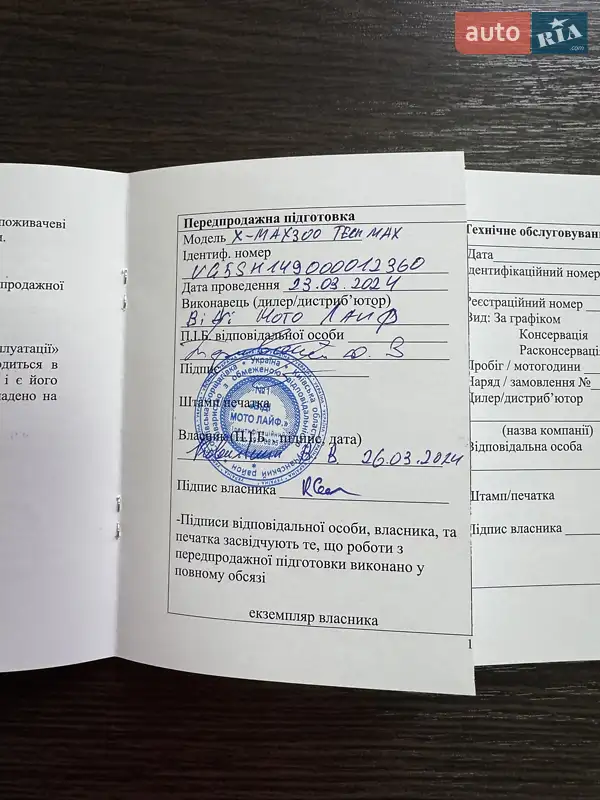 auto RIA .com
споживачеві
продажної
сплуатації»
ходиться в
і є його
Передпродажна підготовка
Модель X-MAX300 TECH MAX
Ідентиф. номер
VG5SH149000012360
Дата проведення 23.03.2024
Виконавець (дилер/дистриб’ютор)
Віді Мото Лайф
П.І.Б. відповідальної особи
Підпис
Штамп/печатка
Україна
№1
МОТО ЛАЙФ.»
Власник (П.І.Б., підпис, дата)
В. В. 26.03.2024
Підпис власника
-Підписи відповідальної особи, власника, та
печатка засвідчують те, що роботи з
передпродажної підготовки виконано у
повному обсязі
екземпляр власника
1
Технічне обслуговуванн
Дата
Ідентифікаційний номер
Реєстраційний номер
Вид: За графіком
Консервація
Расконсервація
Пробіг / мотогодини
Наряд / замовлення №
Дилер/дистриб’ютор
(назва компанії)
Відповідальна особа
Штамп/печатка
Підпис власника